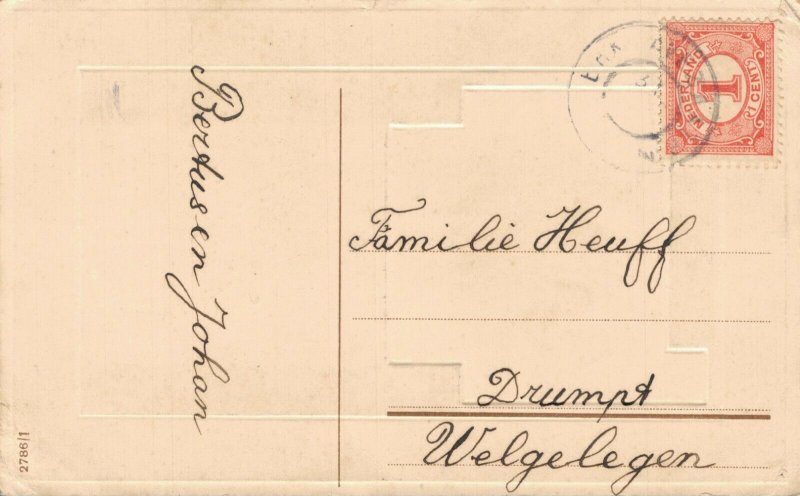 Bertus en Johan
NEDERLAND
1
1 CENT
Familie Heuff
Drumpt
Welgelegen
2786/1